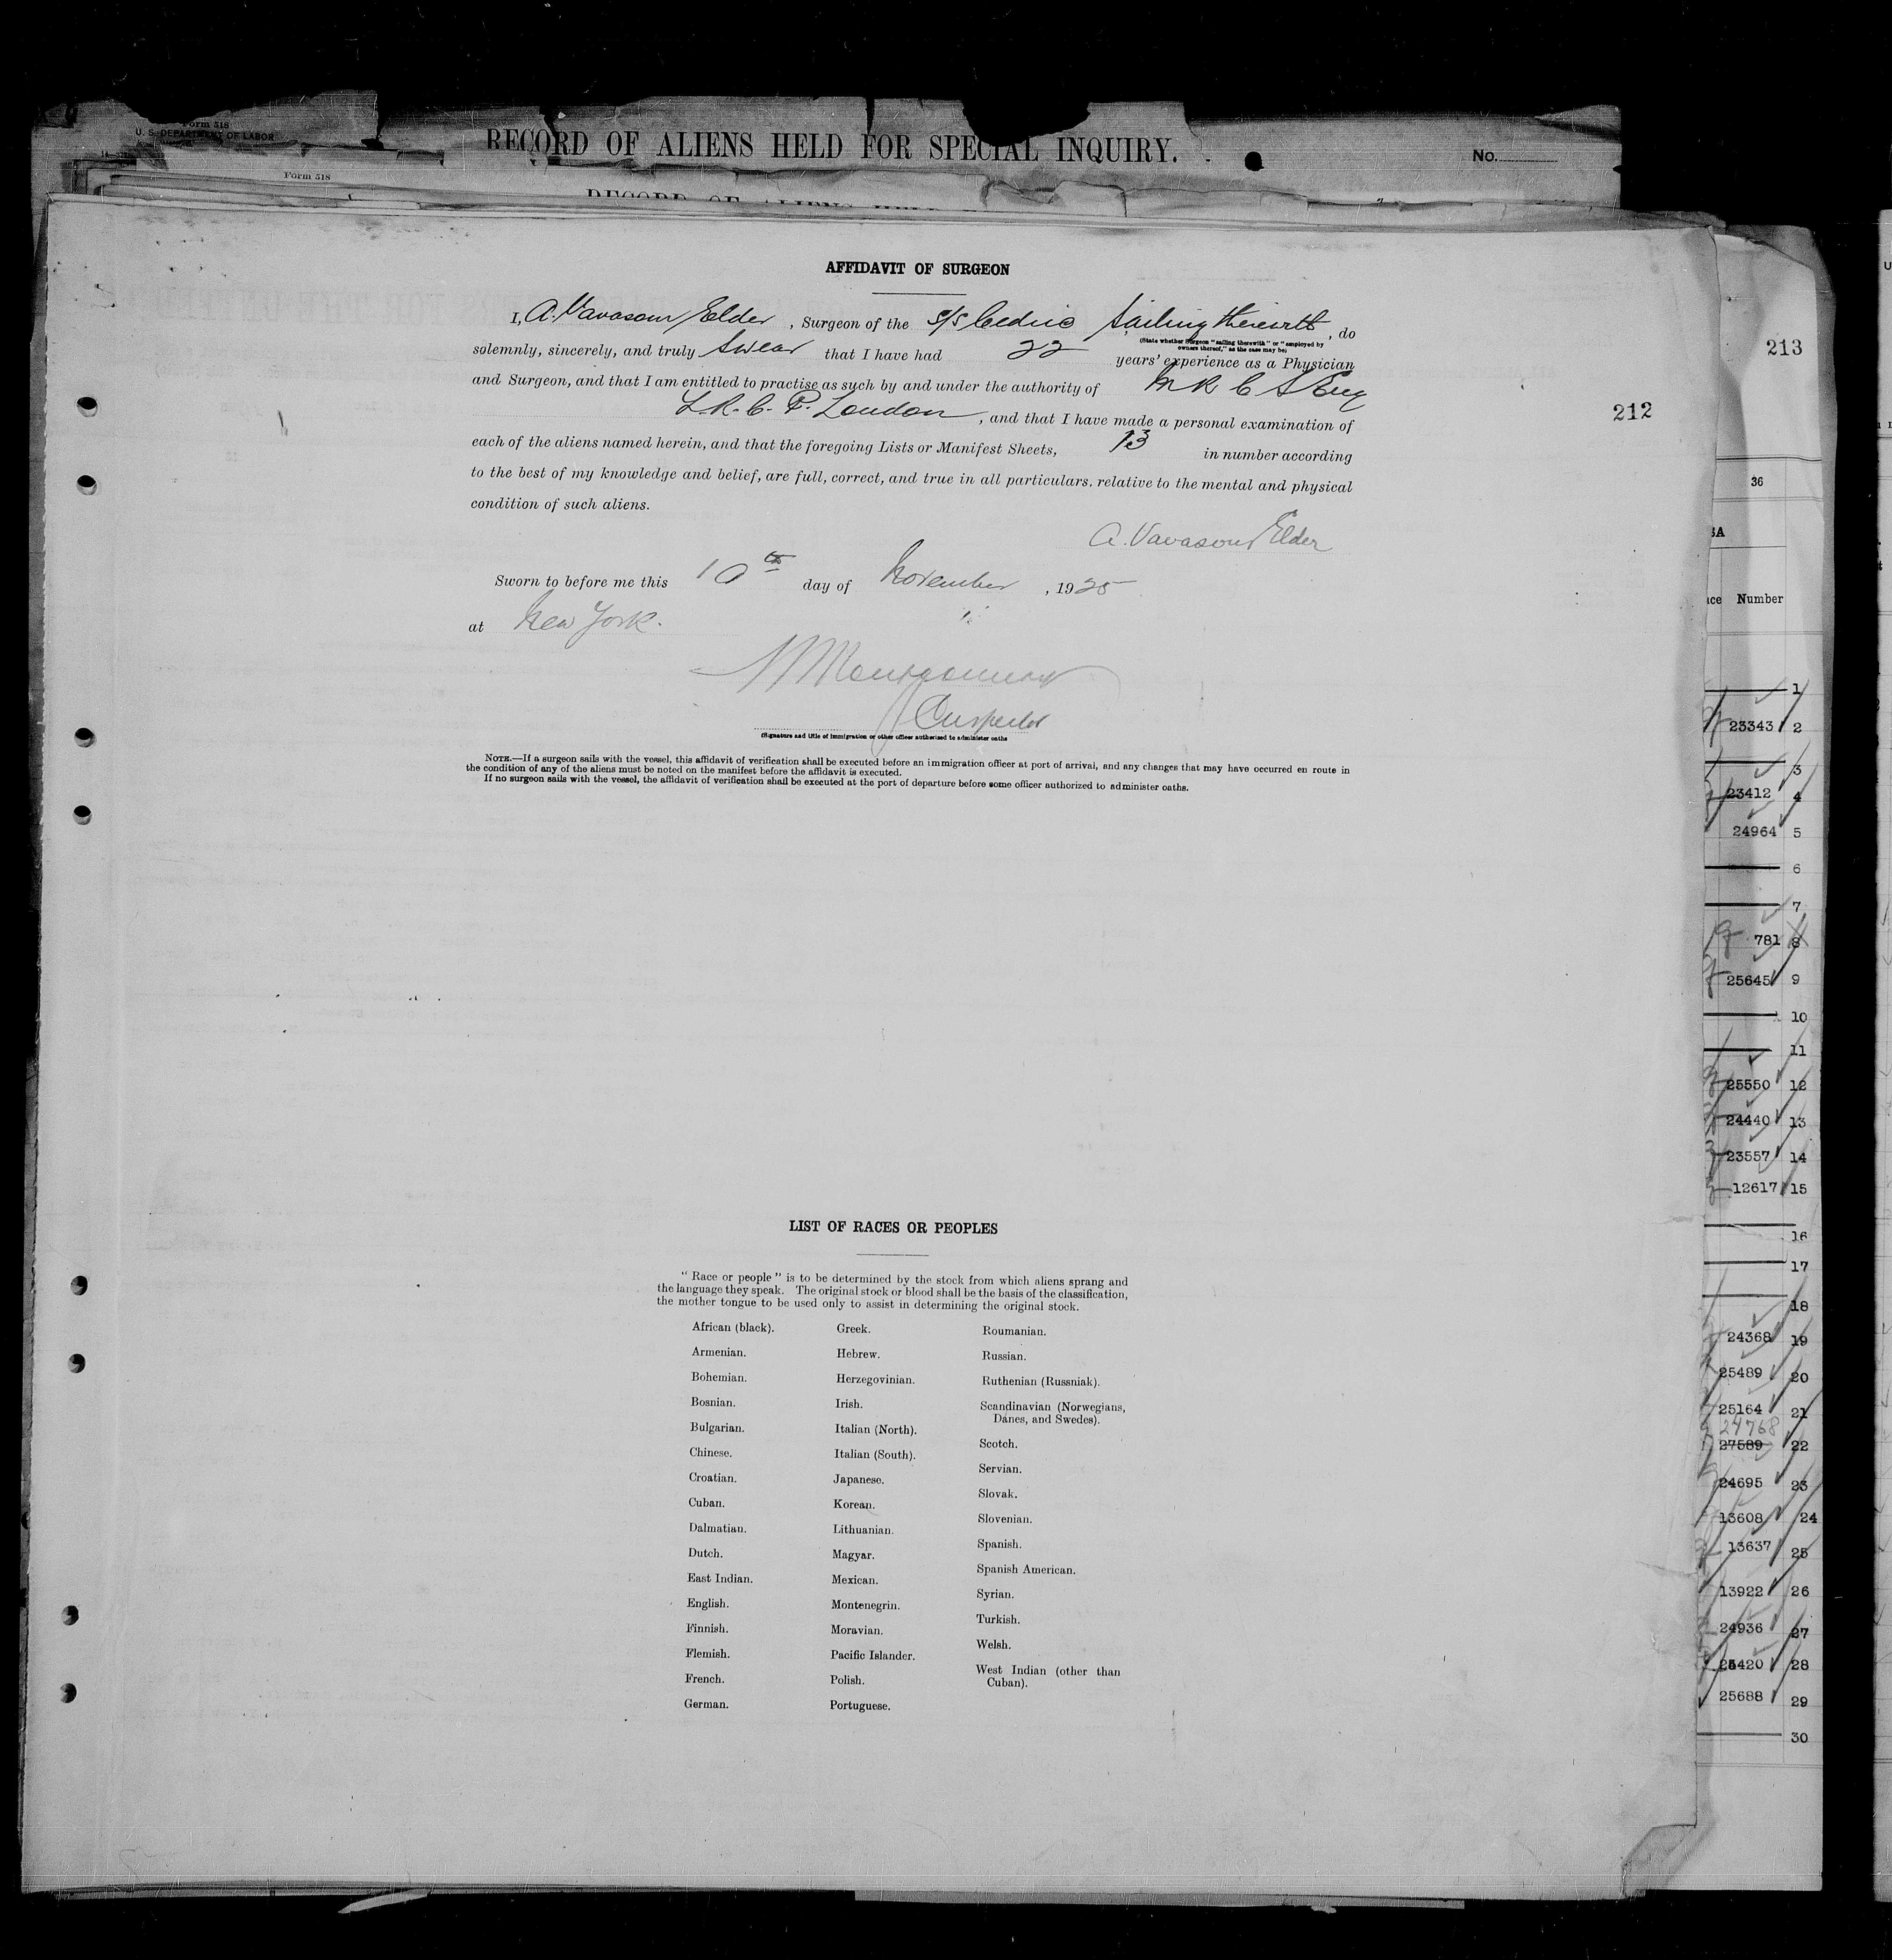 Form 518
U. S. DEPARTMENT OF LABOR
RECORD OF ALIENS HELD FOR SPECIAL INQUIRY.
No.
Form 518
RECORD OF ALIENS HELD
AFFIDAVIT OF SURGEON
I, A. Vavasour Elder, Surgeon of the S/S Cedric Sailing therewith, do
(State whether Surgeon "sailing therewith" or "employed by
owners thereof," as the case may be)
solemnly, sincerely, and truly Swear that I have had 22 years' experience as a Physician
and Surgeon, and that I am entitled to practise as such by and under the authority of M R C S Eng
L.R.C.P. London, and that I have made a personal examination of
each of the aliens named herein, and that the foregoing Lists or Manifest Sheets, 13 in number according
to the best of my knowledge and belief, are full, correct, and true in all particulars, relative to the mental and physical
condition of such aliens.
A. Vavasour Elder
Sworn to before me this 10th day of November, 1925
at New York.
Montgomery
Inspector
(Signature and title of immigration or other officer authorized to administer oaths
NOTE.—If a surgeon sails with the vessel, this affidavit of verification shall be executed before an immigration officer at port of arrival, and any changes that may have occurred en route in
the condition of any of the aliens must be noted on the manifest before the affidavit is executed.
If no surgeon sails with the vessel, the affidavit of verification shall be executed at the port of departure before some officer authorized to administer oaths.
LIST OF RACES OR PEOPLES
" Race or people " is to be determined by the stock from which aliens sprang and
the language they speak. The original stock or blood shall be the basis of the classification,
the mother tongue to be used only to assist in determining the original stock.
African (black).
Armenian.
Bohemian.
Bosnian.
Bulgarian.
Chinese.
Croatian.
Cuban.
Dalmatian.
Dutch.
East Indian.
English.
Finnish.
Flemish.
French.
German.
Greek.
Hebrew.
Herzegovinian.
Irish.
Italian (North).
Italian (South).
Japanese.
Korean.
Lithuanian.
Magyar.
Mexican.
Montenegrin.
Moravian.
Pacific Islander.
Polish.
Portuguese.
Roumanian.
Russian.
Ruthenian (Russniak).
Scandinavian (Norwegians,
Danes, and Swedes).
Scotch.
Servian.
Slovak.
Slovenian.
Spanish.
Spanish American.
Syrian.
Turkish.
Welsh.
West Indian (other than
Cuban).
212
213
36
Number
1
23343 2
3
23412 4
24964 5
6
7
781 8
25645 9
10
11
25550 12
24440 13
23557 14
12617 15
16
17
18
24368 19
25489 20
25164 21
24768
27589 22
24695 23
13608 24
13637 25
13922 26
24936 27
25420 28
25688 29
30